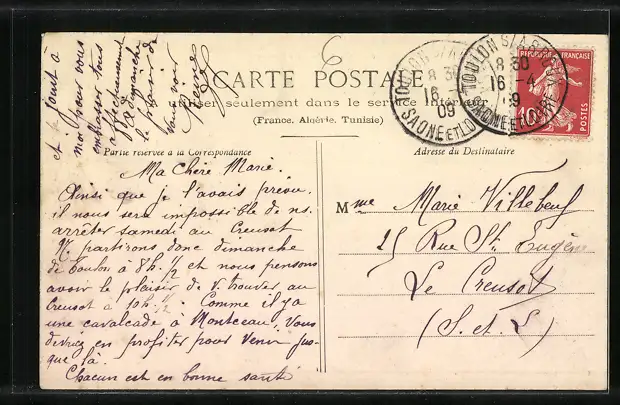 CARTE POSTALE
utiliser seulement dans le service Intérieur
(France, Algérie, Tunisie)
Partie réservée à la Correspondance
Adresse du Destinataire
Ma Chère Marie.
Ainsi que je l'avais prévu,
il nous sera impossible de ns.
arrêter samedi au Creusot
N. partirons donc dimanche
de Toulon à 8h. ½ et nous pensons
avoir le plaisir de v. trouver au
Creusot à 10h. ½. Comme il y a
une cavalcade à Montceau, vous
devriez en profiter pour venir jus-
que là.
Chacun est en bonne santé
et
moi pour vous
embrasser tous
affectueusement
dimanche
le plaisir de
vous voir
Mme Marie Villebeuf
25 Rue St. Eugène
Le Creusot
(S. et L)
TOULON S/ARROUX
18 30
16 -4
09
SAONE ET LOIRE
TOULON S/ARROUX
18 30
16 -4
09
SAONE ET LOIRE
REPUBLIQUE FRANÇAISE
10
POSTES